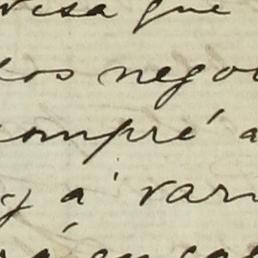 visa que
los nego
compré a
y á vari